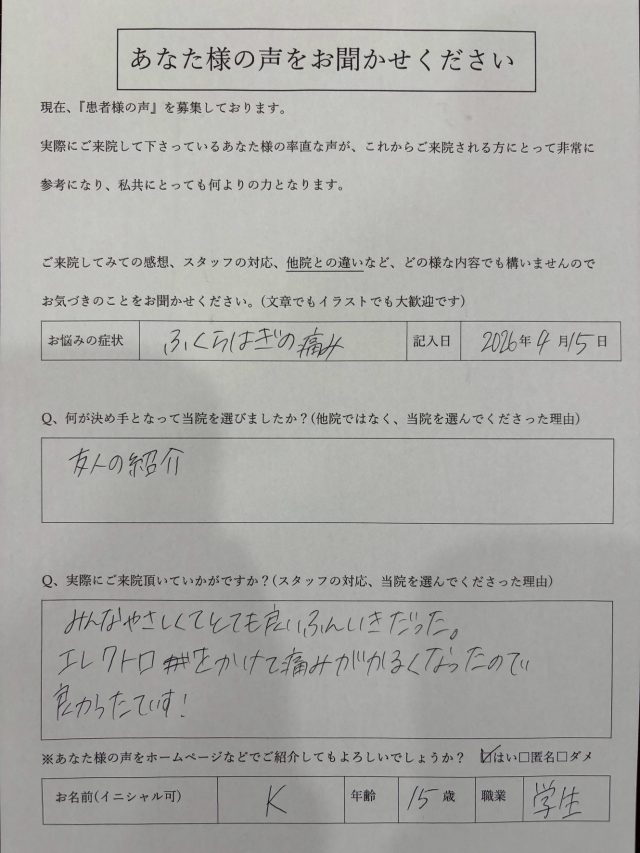 あなた様の声をお聞かせください
現在、『患者様の声』を募集しております。
実際にご来院して下さっているあなた様の率直な声が、これからご来院される方にとって非常に
参考になり、私共にとっても何よりの力となります。
ご来院してみての感想、スタッフの対応、他院との違いなど、どの様な内容でも構いませんので
お気づきのことをお聞かせください。(文章でもイラストでも大歓迎です)
お悩みの症状 ふくらはぎの痛み 記入日 2026年 4月15日
Q、何が決め手となって当院を選びましたか?(他院ではなく、当院を選んでくださった理由)
友人の紹介
Q、実際にご来院頂いていかがですか?(スタッフの対応、当院を選んでくださった理由)
みんなやさしくてとても良いふんいきだった。
エレクトロをかけて痛みがかるくなったので
良かったです!
※あなた様の声をホームページなどでご紹介してもよろしいでしょうか? ☑はい□匿名□ダメ
お名前(イニシャル可) K 年齢 15歳 職業 学生